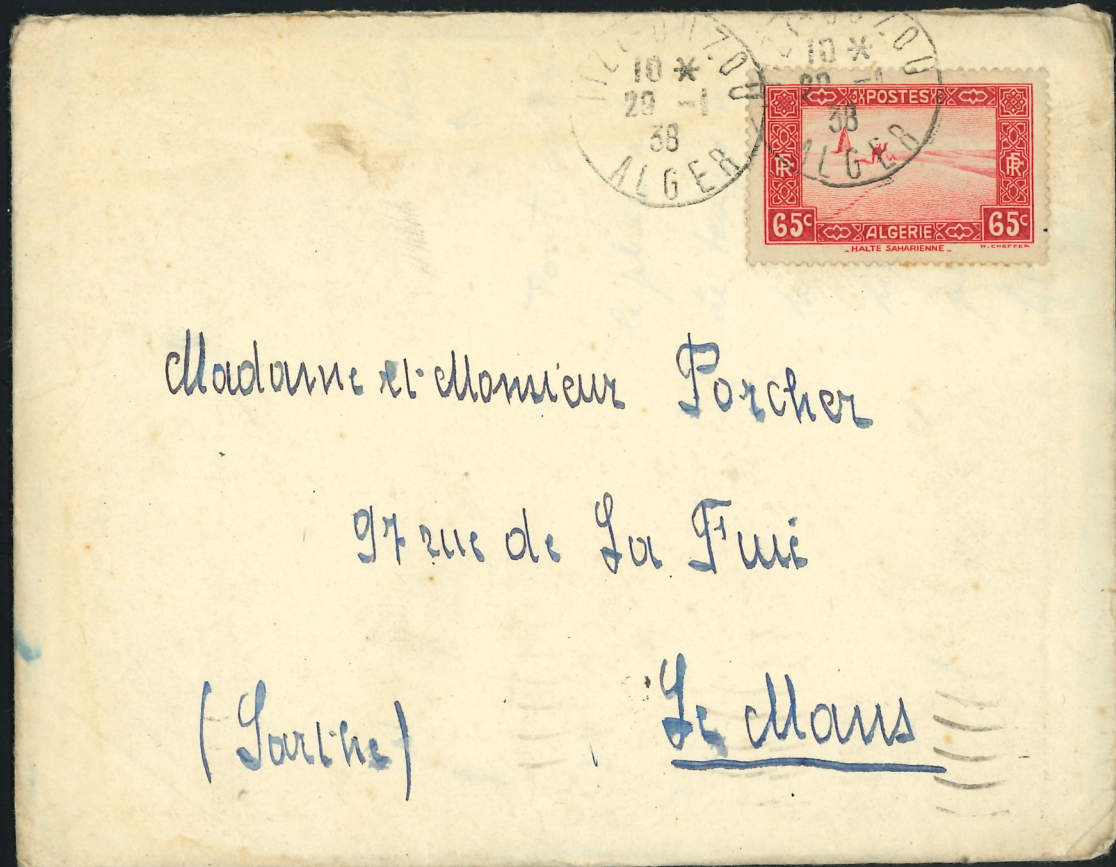 TIZI-OUZOU
10 *
29 -1
38
ALGER
TIZI-OUZOU
10 *
29 -1
38
ALGER
POSTES
RF RF
65c ALGERIE 65c
HALTE SAHARIENNE
Madame et Monsieur Porcher
97 rue de La Fuie
(Sarthe) Le Mans